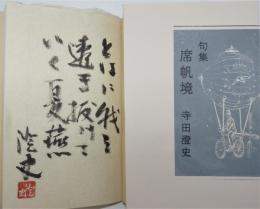 とはに我を
透き抜けて
いく夏燕
澄史
句集
席帆境
寺田澄史